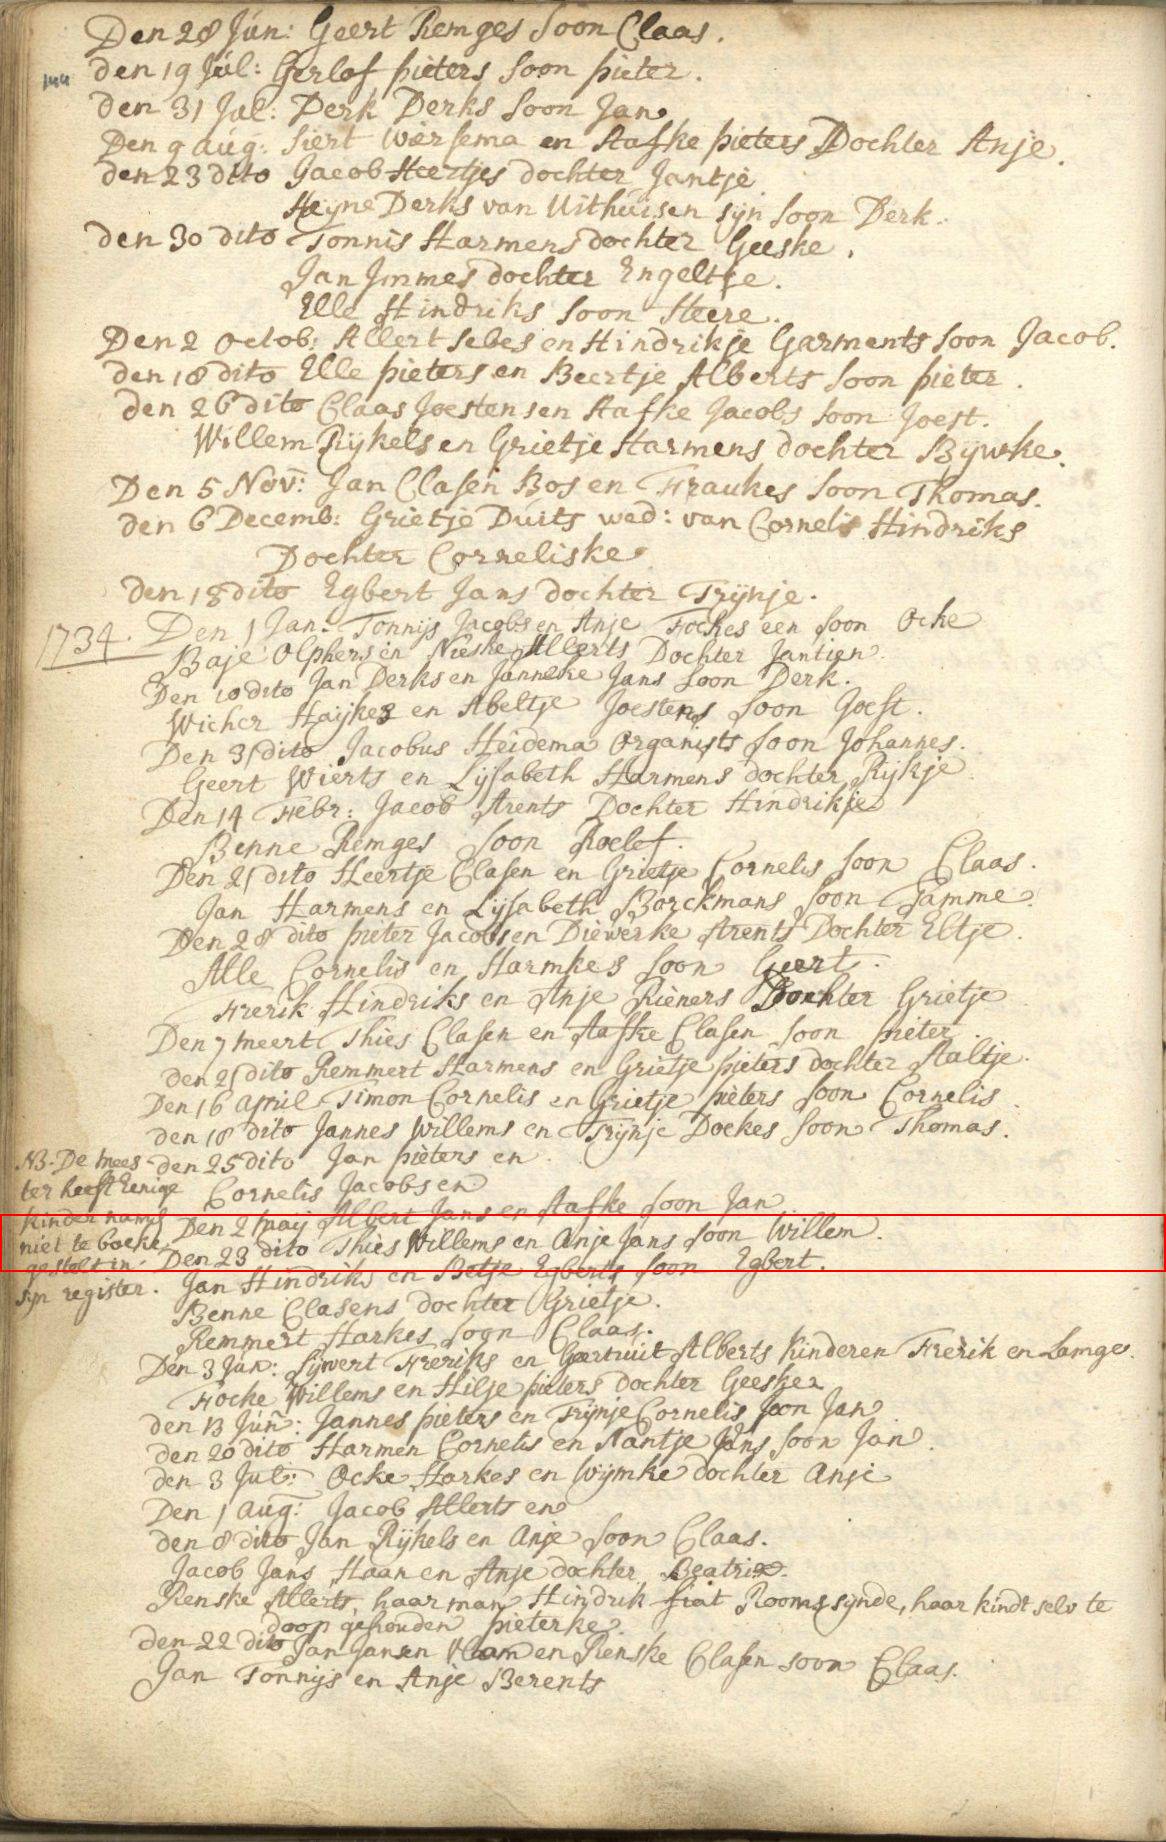 Den 28 Jun: Geert Remges soon Claas.
den 19 Jul: Gerlof pieters soon pieter.
den 31 Jul: Derk Derks soon Jan
Den 9 aug: Siert Wiersema en Aafke pieters Dochter Anje.
den 23 dito Jacob Heertjes dochter Jantje
Heyne Derks van Uithuisen sijn soon Derk.
den 30 dito Tonnis Harmens dochter Geeske.
Jan Jmmes dochter Engeltje.
Elle Hindriks soon Heere.
Den 2 Octob: Allert Sebes en Hindrikje Garments soon Jacob.
den 18 dito Elle pieters en Beertje Alberts soon pieter.
den 26 dito Claas Joestens en Aafke Jacobs soon Joest.
Willem Rijkels en Grietje Harmens dochter Bijwke.
Den 5 Nov: Jan Clasen Bos en Fraukes soon Thomas.
den 6 Decemb: Grietje Duits wed: van Cornelis Hindriks
Dochter Corneliske
den 18 dito Egbert Jans dochter Trijnje.
1734. Den 1 Jan: Tonnijs Jacobs en Anje Fockes een soon Ocke
Baje Olphers en Nieske Allerts Dochter Jantien.
Den 10 dito Jan Derks en Janneke Jans soon Derk.
Wicher Haijkes en Abeltje Joestens soon Joest.
Den 31 dito Jacobus Heidema Organists soon Johannes.
Geert Wierts en Lijsabeth Harmens dochter Rijkje
Den 14 Febr: Jacob Arents Dochter Hindrikje
Benne Remges soon Roelef.
Den 21 dito Heertje Clasen en Grietje Cornelis soon Claas.
Jan Harmens en Lijsabeth Borckmans soon Tamme
Den 28 dito pieter Jacobs en Diewerke Arents Dochter Eltje.
Alle Cornelis en Harmkes soon Geert.
Frerik Hindriks en Anje Rieners Dochter Grietje
Den 7 meert Thies Clasen en Aafke Clasen soon pieter.
den 21 dito Remmert Harmens en Grietje pieters dochter Aaltje.
Den 16 april Timon Cornelis en Grietje pieters soon Cornelis
den 18 dito Jannes Willems en Trijnje Doekes soon Thomas.
NB. De mees-
ter heeft Eenige
kinder namen
niet te boeke
gestelt in
sijn register.
den 25 dito Jan pieters en
Cornelis Jacobs en
Den 2 maij Albert Jans en Aafke soon Jan
Den 23 dito Thies Willems en Anje Jans soon Willem.
Jan Hindriks en Betje Egberts soon Egbert.
Benne Clasens dochter Grietje.
Remmert Harkes soon Claas.
Den 3 Jun: Sijwert Freriks en Geertruit Alberts kinderen Frerik en Lamge.
Focke Willems en Hilje pieters dochter Geeske
den 13 Jun: Jannes pieters en Trijnje Cornelis soon Jan
den 20 dito Harmen Cornelis en Nantje Jans soon Jan.
den 3 Jul: Ocke Harkes en Wijmke dochter Anje
Den 1 aug: Jacob Allerts en
den 8 dito Jan Rijkels en Anje soon Claas.
Jacob Jans Haan en Anje dochter Beatrix.
Renske Allerts, haar man Hindrik fiat Rooms sijnde, haar kindt selv te
doop gehouden pieterke.
den 22 dito Jan Jansen en Renske Clasen soon Claas.
Jan Tonnijs en Anje Berents